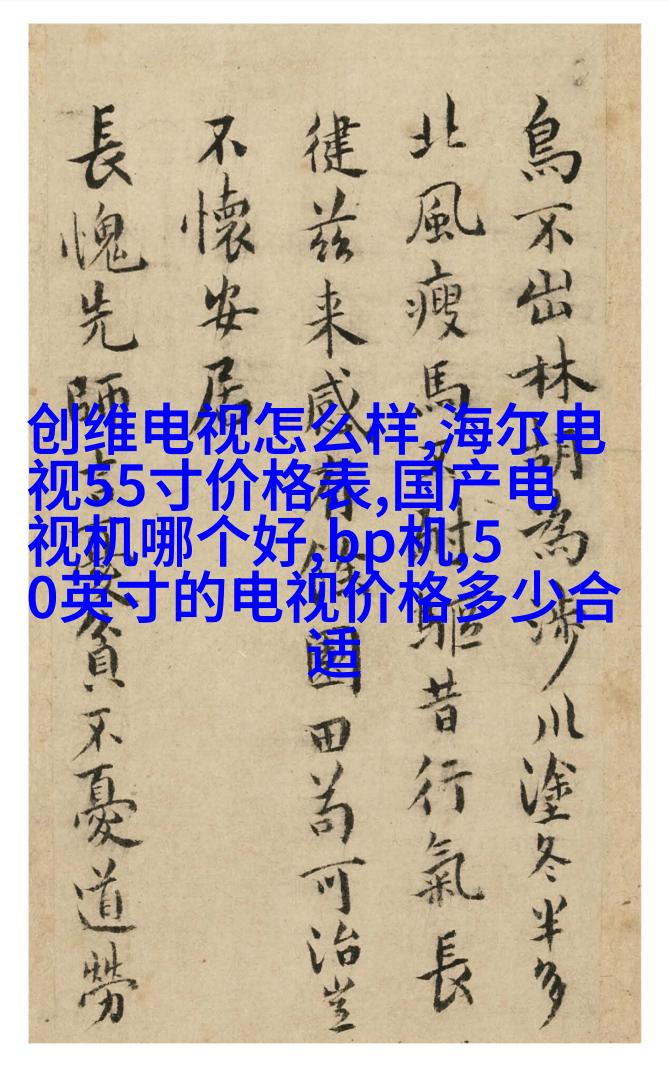 鳥不出林胡為涉川塗冬半多
北風瘦馬不耐驅昔行氣長
健茲来感園田苟可治豈
不懷安居
長愧先師言貧不憂道勞
创维电视怎么样,海尔电
视55寸价格表,国产电
视机哪个好,bp机,5
0英寸的电视价格多少合
适